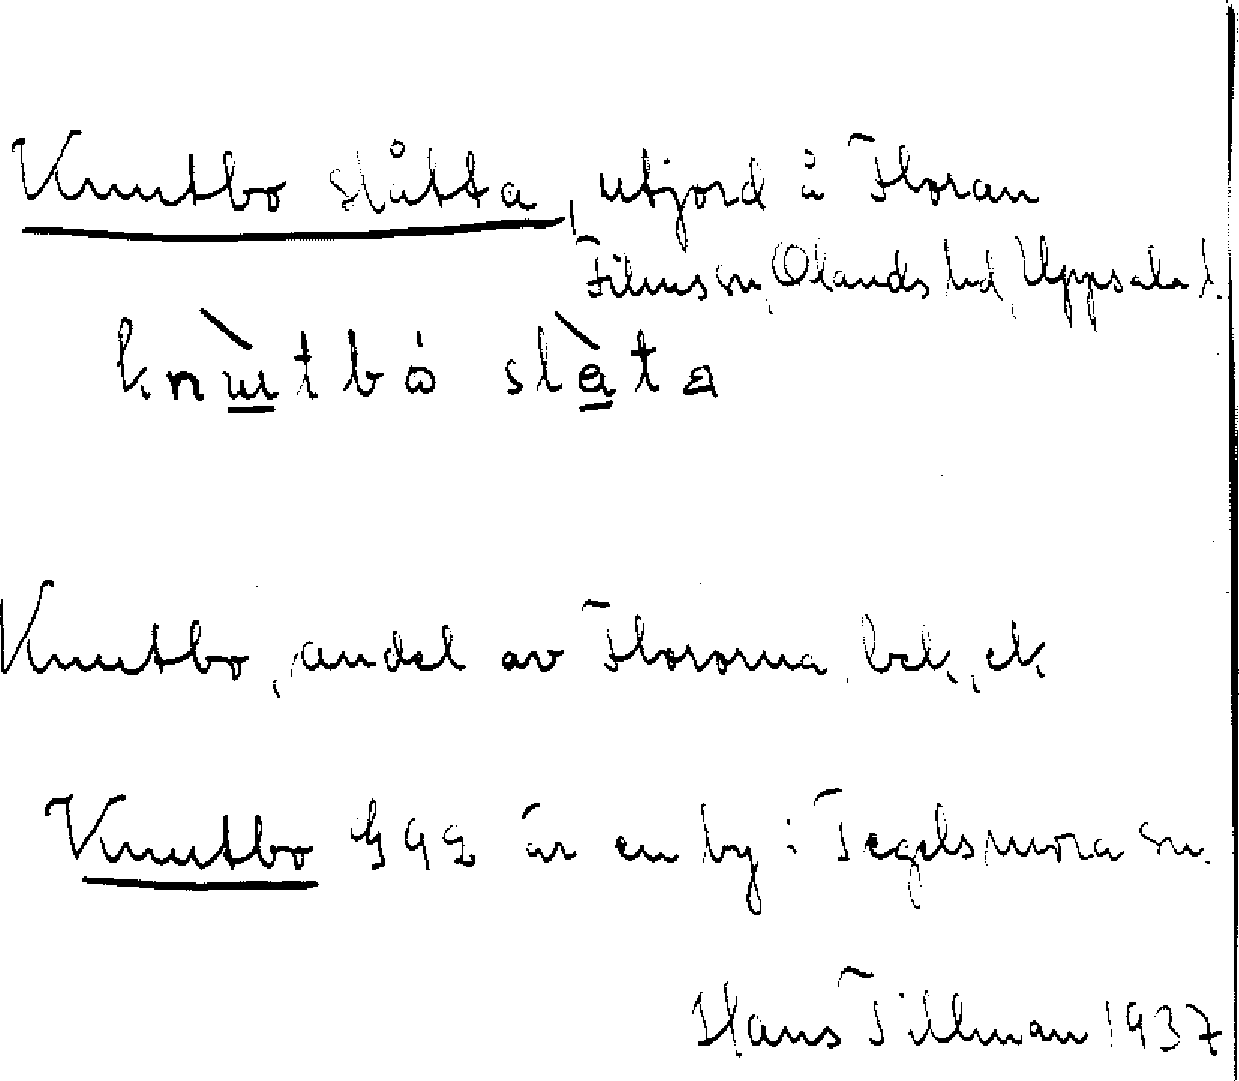 Knutbo slåtta, utjord å Floran
Films sn, Olands hd, Uppsala l.
knùtbó slàta
Knutbo, andel av Flororna, bek, ek
Knutbo G 9 2 är en by i Tegelsmora sn.
Hans Tillman 1937